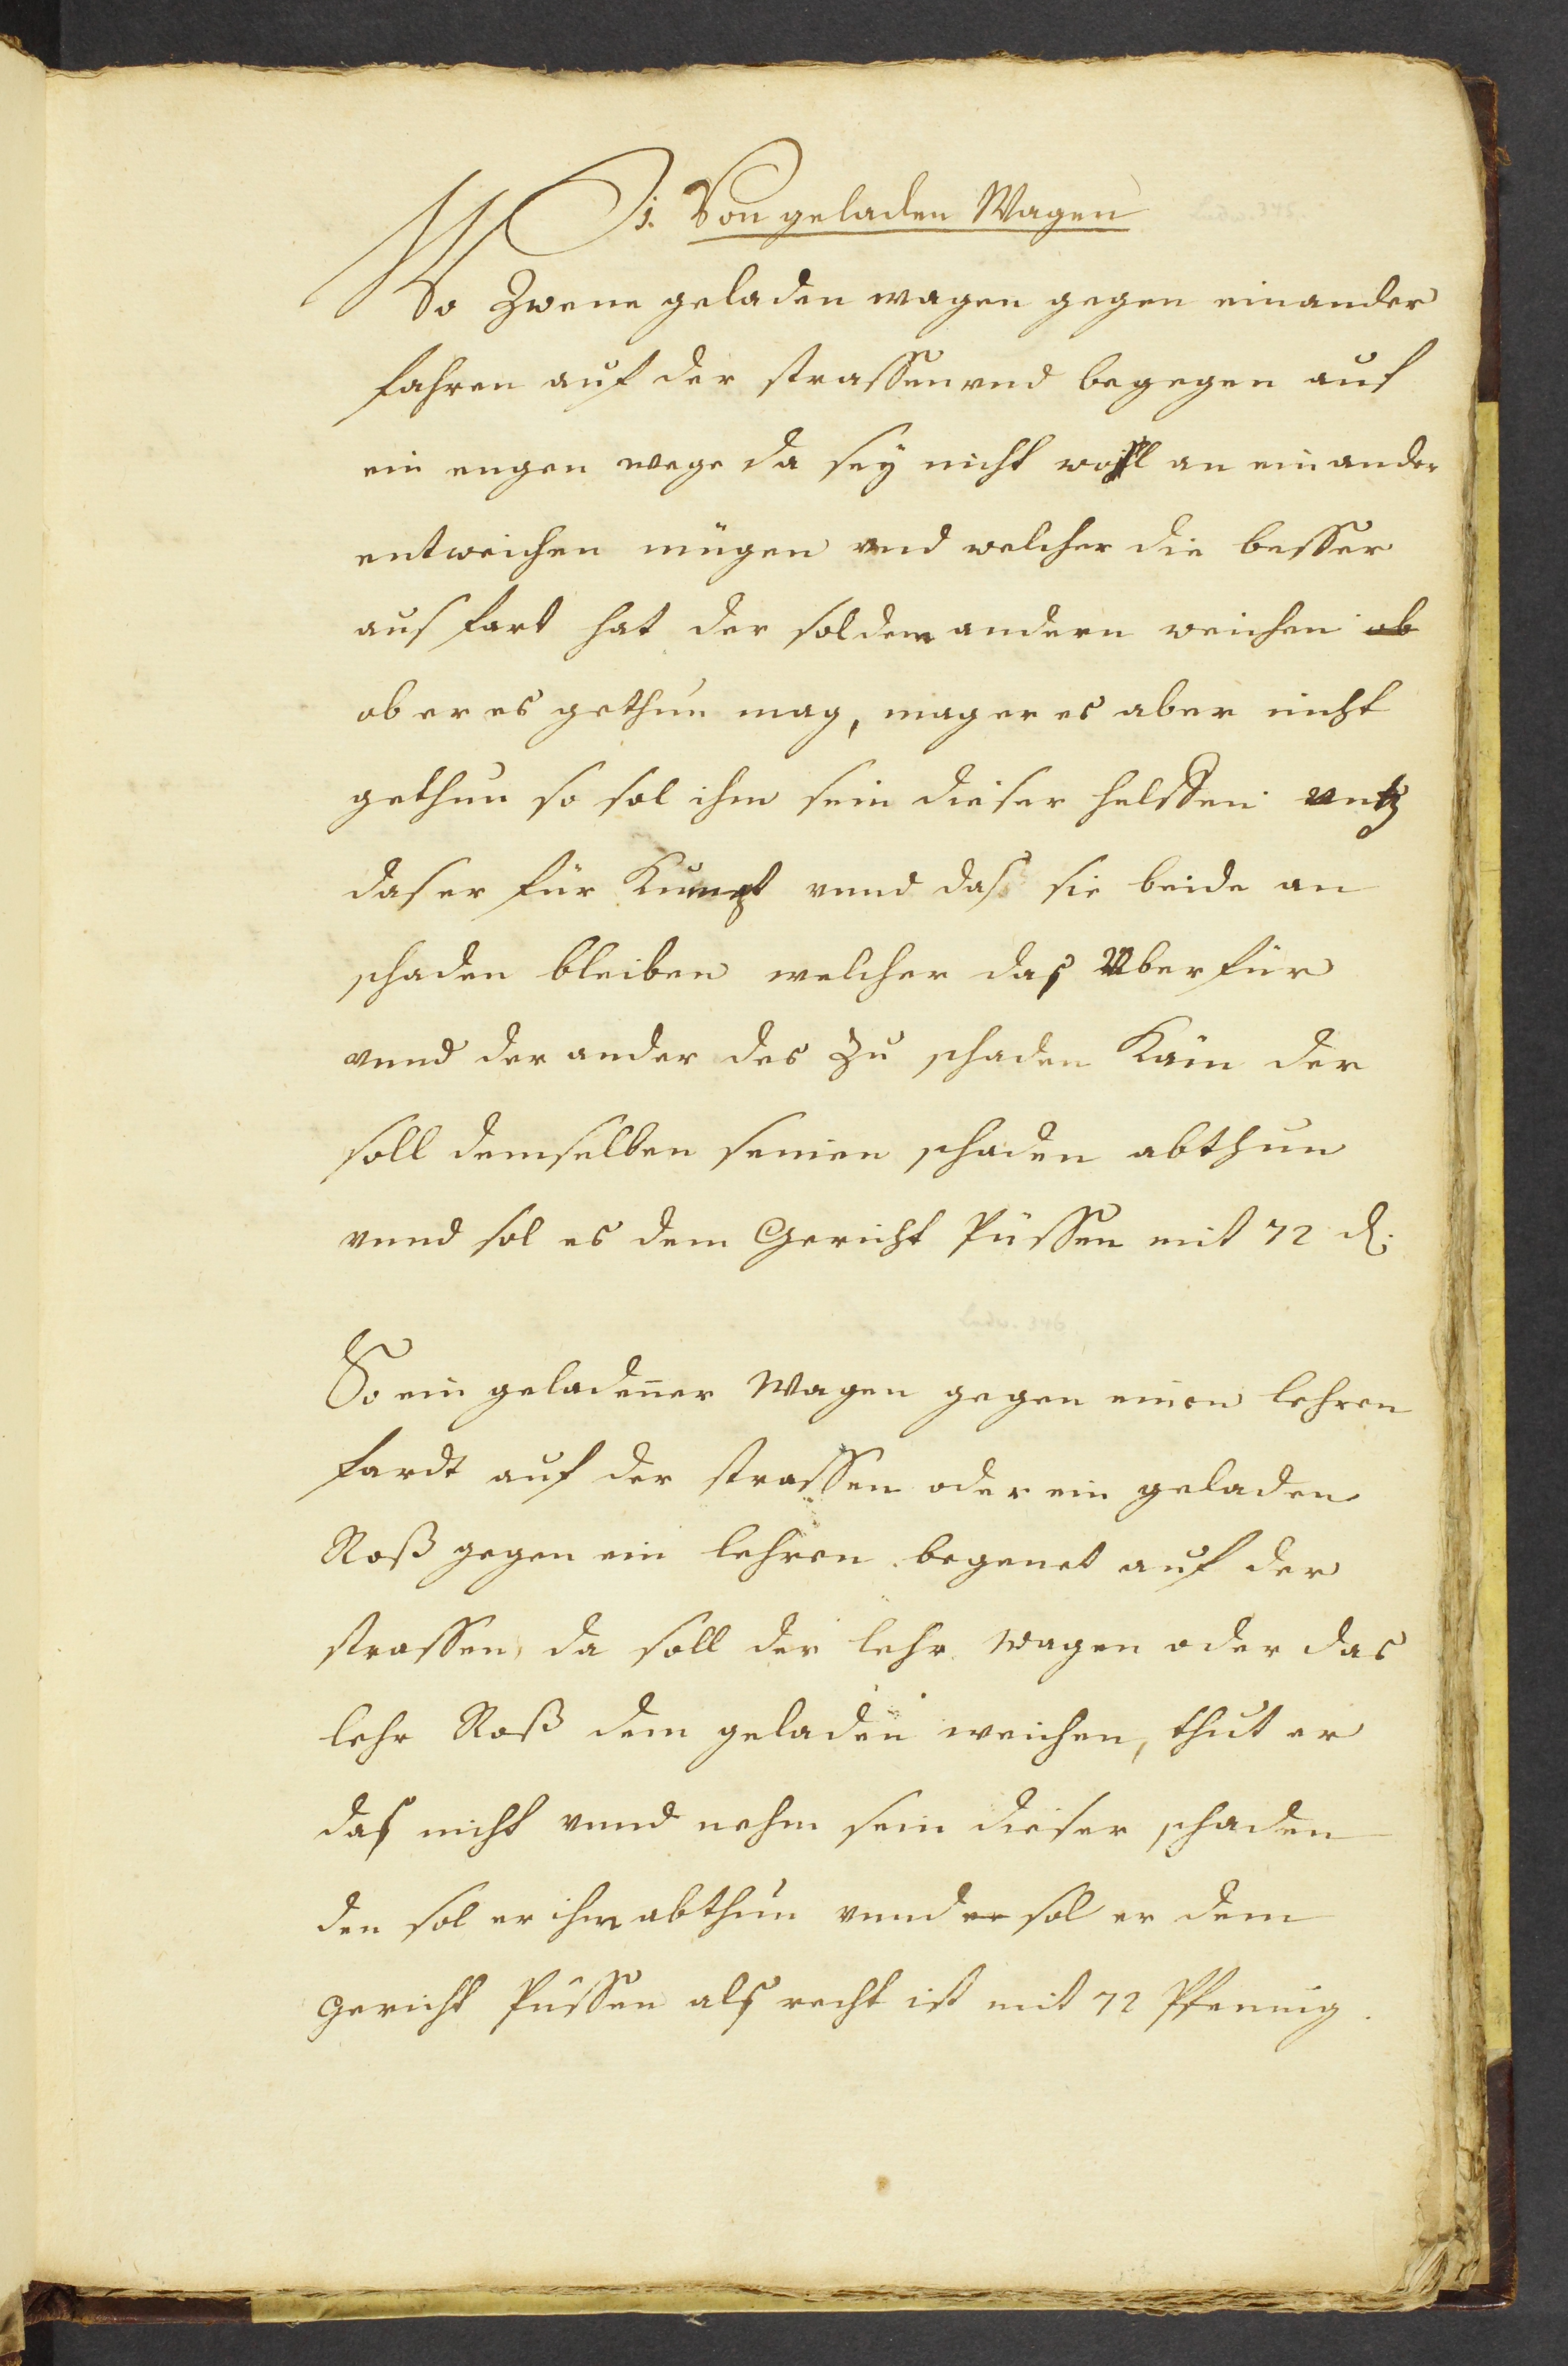 j. Von geladen Wagen
So Zwene geladen wagen gegen einander
fahren auf der strassen vnd begegen auf
ein engen wege da sey nicht wohl an einander
entweichen mügen vnd welcher die besser
aus fart hat der sol dem andern weichen ob
ob er es gethun mag, mag er es aber nicht
gethun so sol ihm sein dieser helffen vntz
das er für Kumpt vnnd das sie beide an
schaden bleiben welcher das Vberfür
vnnd der ander des Zu schaden Käm der
soll demselben seinen schaden abthun
vnnd sol es dem Gericht Püssen mit 72 d.
So ein geladener Wagen gegen einen lehren
fardt auf der strassen oder ein geladen
Roß gegen ein lehren begenet auf der
strassen, da soll der lehr wagen oder das
lehr Roß dem geladen weichen, thut er
das nicht vnnd nehm sein dieser schaden
den sol er ihm abthun vnnd er sol er dem
gericht Püssen als recht ist mit 72 Pfennig.